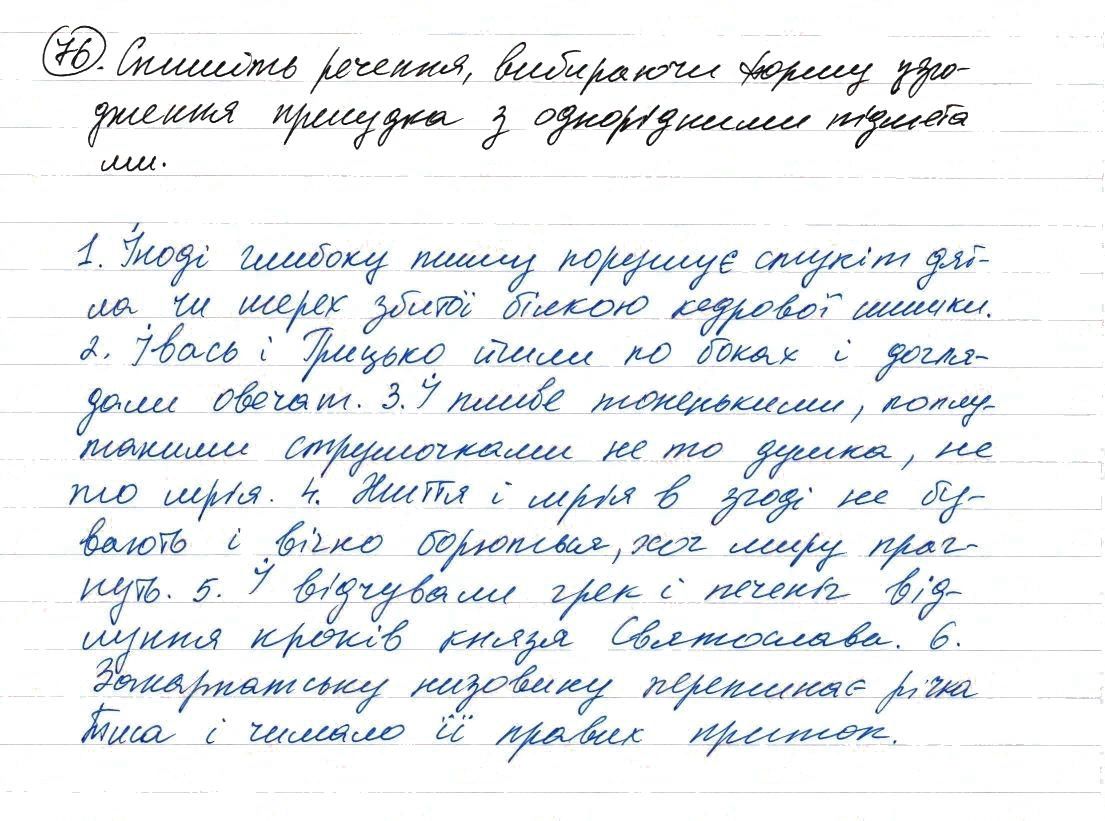 76. Спишіть речення, вибираючи форму узго-
дження присудка з однорідними підмета
ми.
1. Іноді глибоку тишу порушує стукіт дят-
ла чи шерех збитої білкою кедрової шишки.
2. Івась і Грицько йшли по боках і догля-
дали овечат. 3. Й пливе тоненькими, поплу-
таними струмочками не то думка, не
то мрія. 4. Життя і мрія в згоді не бу-
вають і вічно борються, хоч миру праг-
нуть. 5. Й відчували грек і печеніг від-
луння кроків князя Святослава. 6.
Закарпатську низовину перетинає річка
Тиса і чимало її правих приток.